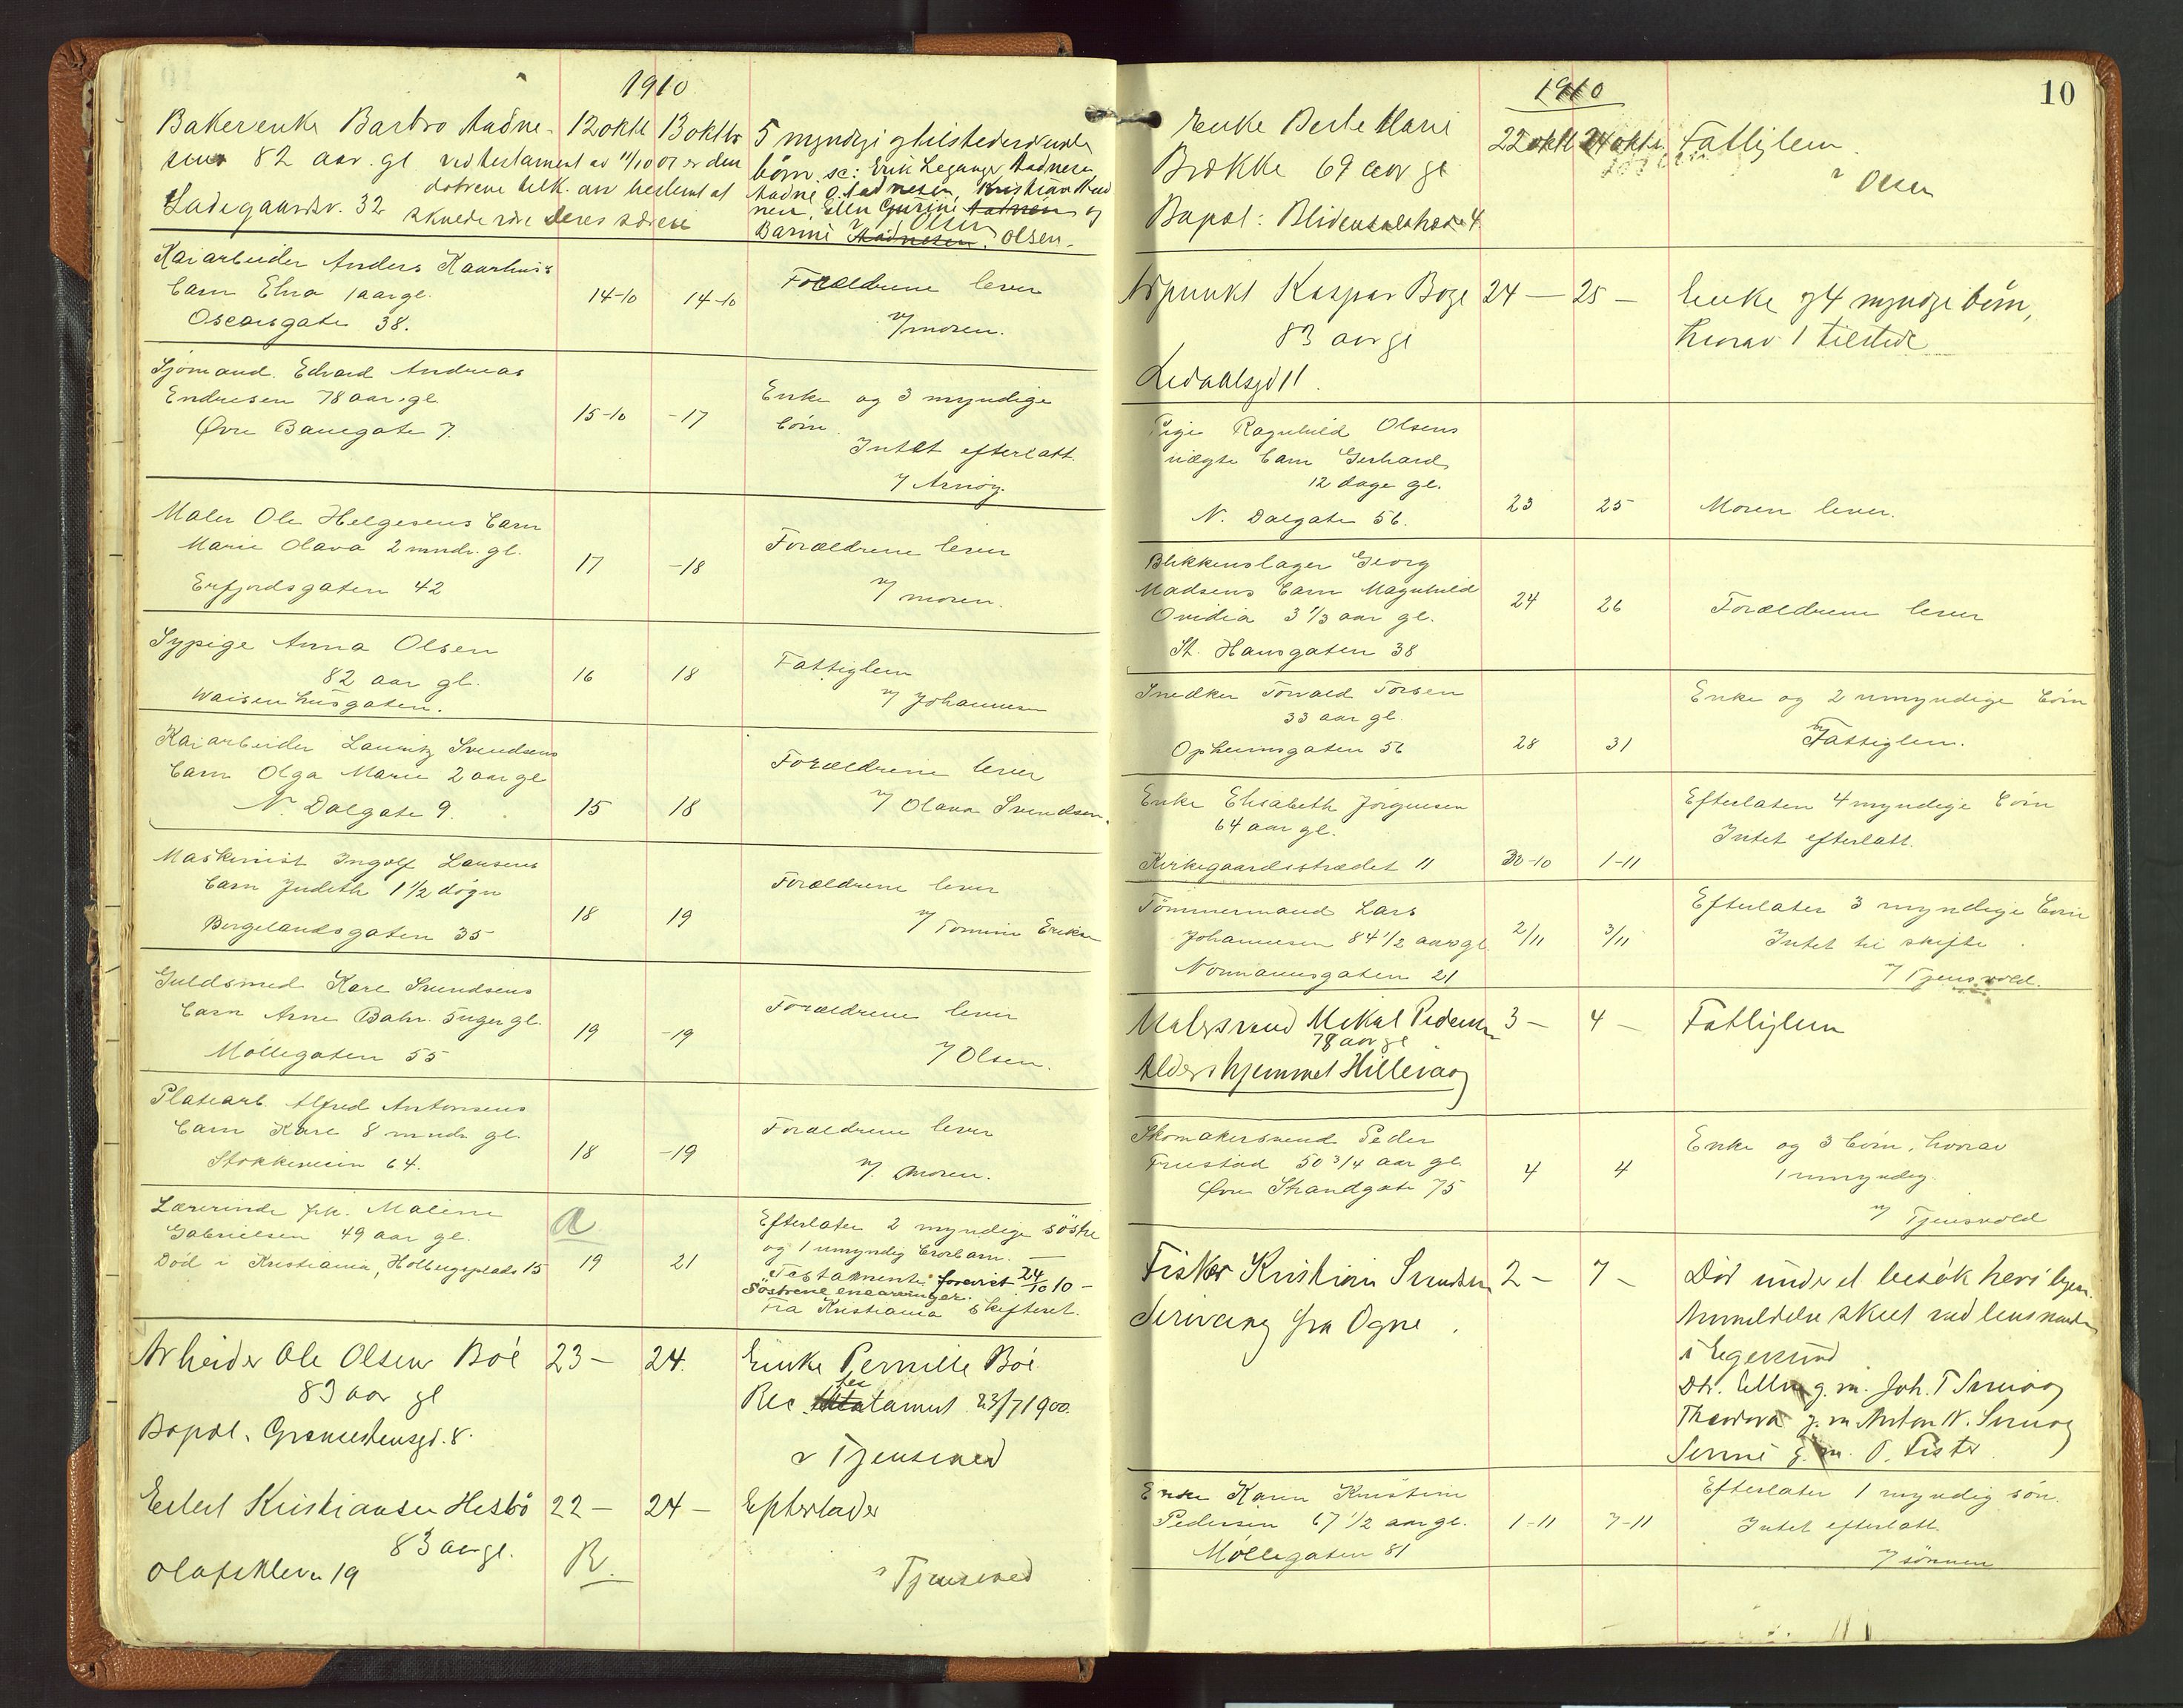 1910
Bakerenke Barbro Aadne- 12 oktb 13 oktbr
sen 82 aar. gl ved testament av 11/10 07 er den
døtrene
Ladegaardsv. 32 skulde deres særeie
5 myndige tilstedeværende
børn. sc: Erik Leganger Aadnesen,
Aadne O. Aadnesen, Kristian Aad
nesen, Ellen Gurine Aadnesen og
Olsen
Barine Aadnesen. Olsen.
Kaiarbeider Anders Kaarhuss
barn Elna 1 aar gl. 14-10 14-10 Forældrene lever
Oscarsgate 38. v/ moren.
Sjømand. Edvard Andreas
Endresen 78 aar. gl. 15-10 -17 Enke og 3 myndige
Øvre Banegate 7. børn.
Intet efterlatt.
v/ Arnøy.
Maler Ole Helgesens barn
Marie Olava 2 mndr. gl. 17 -18 Forældrene lever
Erfjordsgaten 42 v/ moren.
Sypige Anna Olsen
82 aar gl. 16 18 Fattiglem
Waisenhusgaten. v/ Johannesen
Kaiarbeider Lauritz Svendsens
barn Olga Marie 2 aar gl Forældrene lever
N. Dalgate 9. 15 18 v/ Olava Svendsen.
Maskinist Ingolf Larsens
barn Judith 1 1/2 døgn Forældrene lever
Bergelandsgaten 35 18 19 v/ Tomine Eriksen
Guldsmed Karl Svendsens
barn Arne Bahr. 5 uger gl. 19 -19 Forældrene lever
Møllegaten 55 v/ Olsen.
Platearb. Alfred Antonsens
barn Karl 8 mndr. gl. 18 -19 Forældrene lever
Stokkeveien 64. v/. moren.
Lærerinde frk. Malene a
Gabrielsen 49 aar gl.
Død i Kristiania, Holbergsplads 15 19 21
Efterlater 2 myndige søstre
og 1 umyndig brorbarn. —
Testamente forevist 24/10 10 -
Søstrene enearvinger.
Fra Kristiania skifteret.
Arbeider Ole Olsen Bøe 23 — 24. Enke Pernille Bøe
83 aar gl
Rec. tes tament 23/7 1900.
Bopæl. v Tjensvold
Eilert Kristiansen Hesbø 22 — 24 — Efterlader
83 aar gl. R.
Olafskleven 19 v Tjensvold
10
1910
Enke Berte Marie
Brække 69 aar gl 22 oktb 24 oktbr. Fattiglem.
v Olsen
Bopæl: Blidensolstræde 4.
Kaspar Boge 24 — 25 — Enke og 4 myndige børn,
83 aar gl hvorav 1 tilstede
Ledaalsgd 11.
Pige Ragnhild Olsens
uægte barn Gerhard
12 dage gl.
N. Dalgate 56. 23 25 Moren lever.
Blikkenslager Georg
Madsens barn Magnhild
Ovidia 3 1/3 aar gl. 24 26 Forældrene lever
St. Hansgaten 38
Snedker Torvald Torsen Enke og 2 umyndige børn
33 aar gl. v/
Opheimsgaten 56 28 31 Fattiglem.
Enke Elisabeth Jørgensen Efterlater 4 myndige børn
64 aar gl. Intet efterlatt.
Kirkegaardsstrædet 11 30-10 1-11
Tømmermand Lars Efterlater 3 myndige børn
Johannesen 84 1/2 aar gl. 2/11 3/11 Intet til skifte.
Normannsgaten 21 v/ Tjensvold.
Malersvend Mikal Pedersen 3 — 4 — Fattiglem
78 aar gl
Aldershjemmet Hillevaag
Skomakersvend Peder Enke og 3 børn, hvorav
Frestad 50 3/4 aar gl. 4 4 1 umyndig.
Øvre Strandgate 75 v/ Tjensvold
Fisker Kristian Svendsen 2 — 7 — Død under et besøk her i byen.
fra Ogne. Anmeldelse skeet ved lensmanden
i Egersund
Dtr. Ellen g. m. Joh. T
Theodora g. m Anton N.
g. m. O.
Enke Karen Kristine Efterlater 1 myndig søn.
Pedersen 67 1/2 aar gl. 1-11 7-11 Intet efterlatt.
Møllegaten 81 v/ sønnen